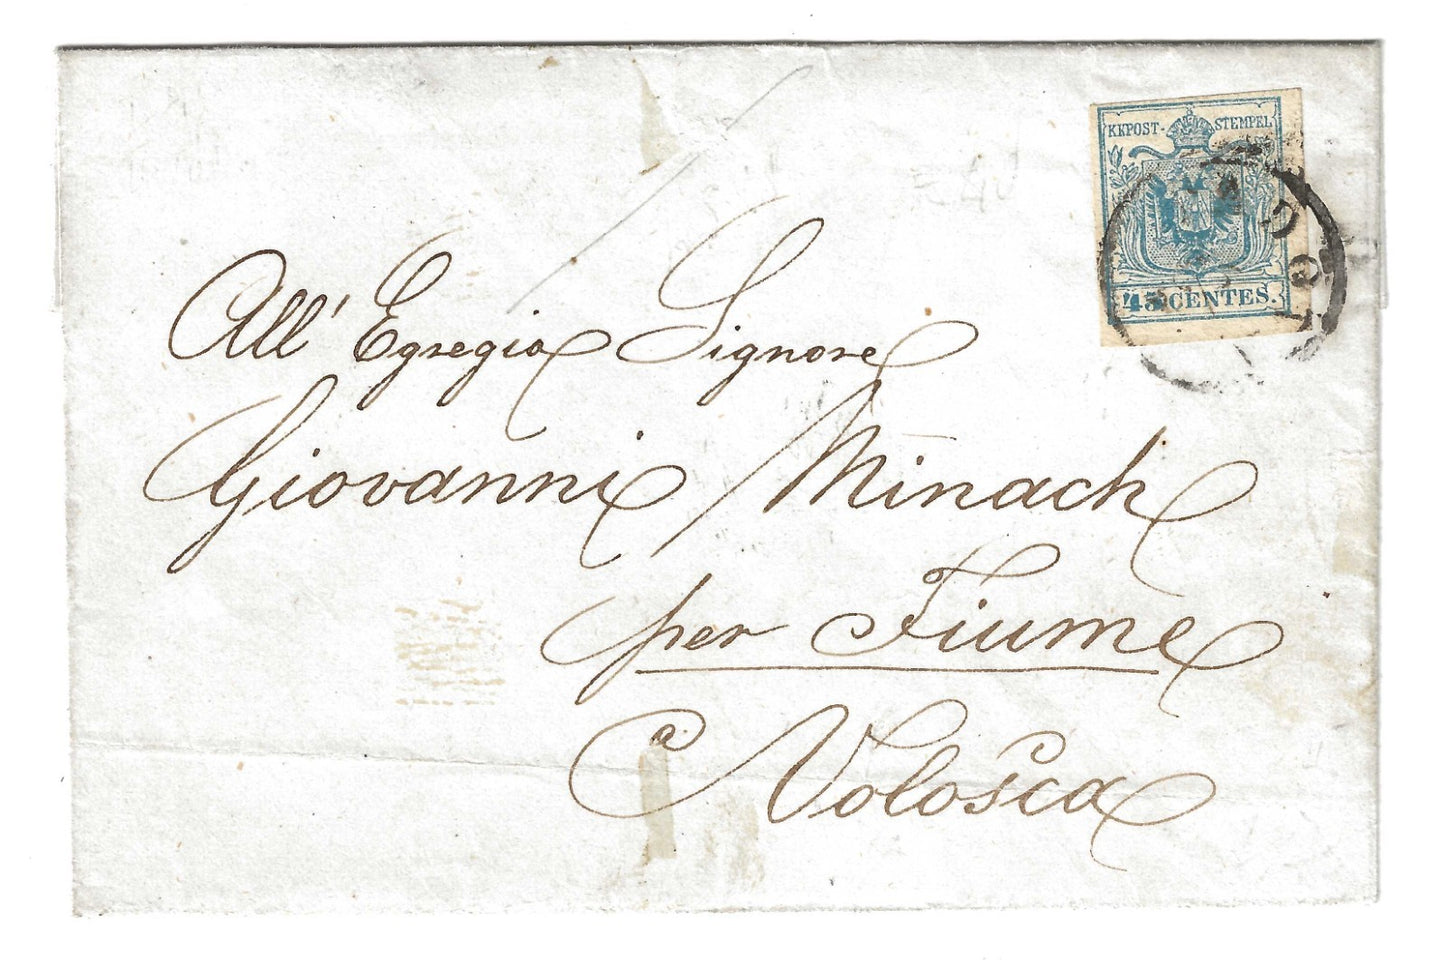 KKPOST-STEMPEL
45 CENTES.
All' Egregio Signore
Giovanni Minach
per Fiume
a Volosca